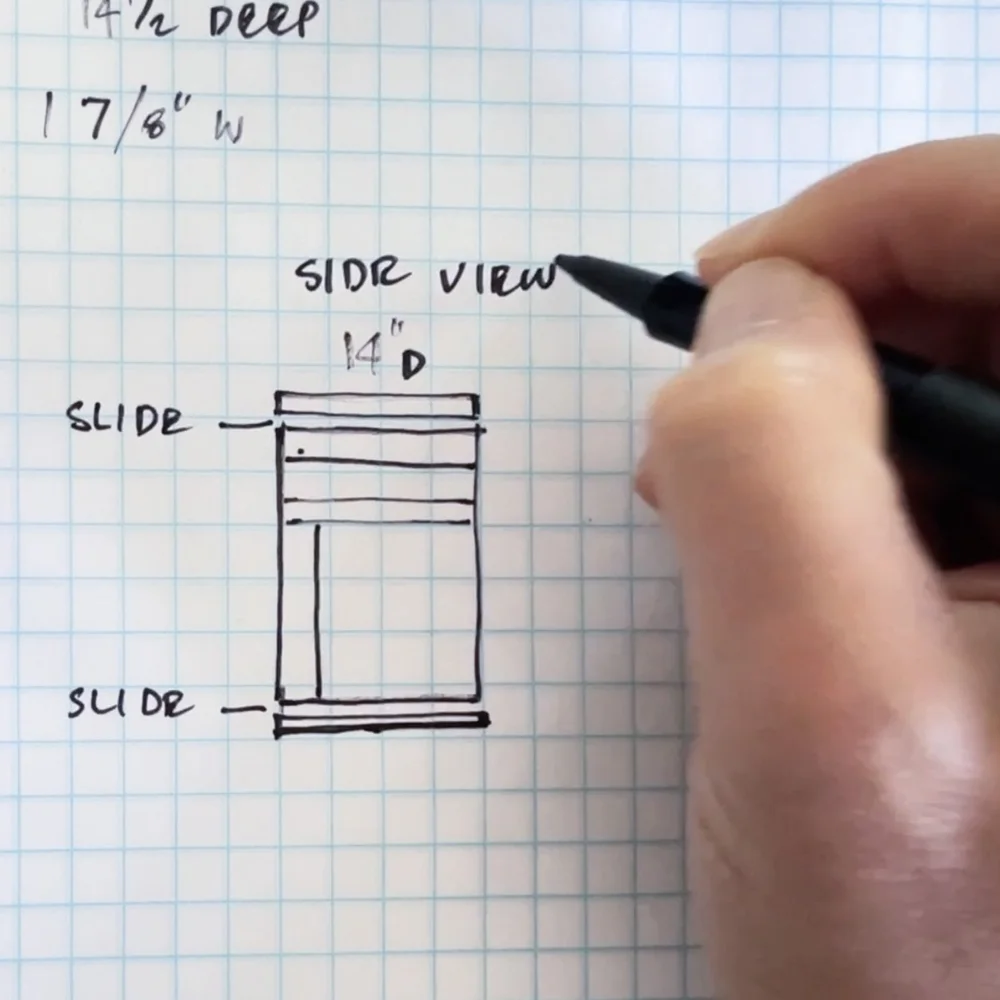 14 1/2 DEEP
1 7/8" W
SIDE VIEW
14" D
SLIDE
SLIDE